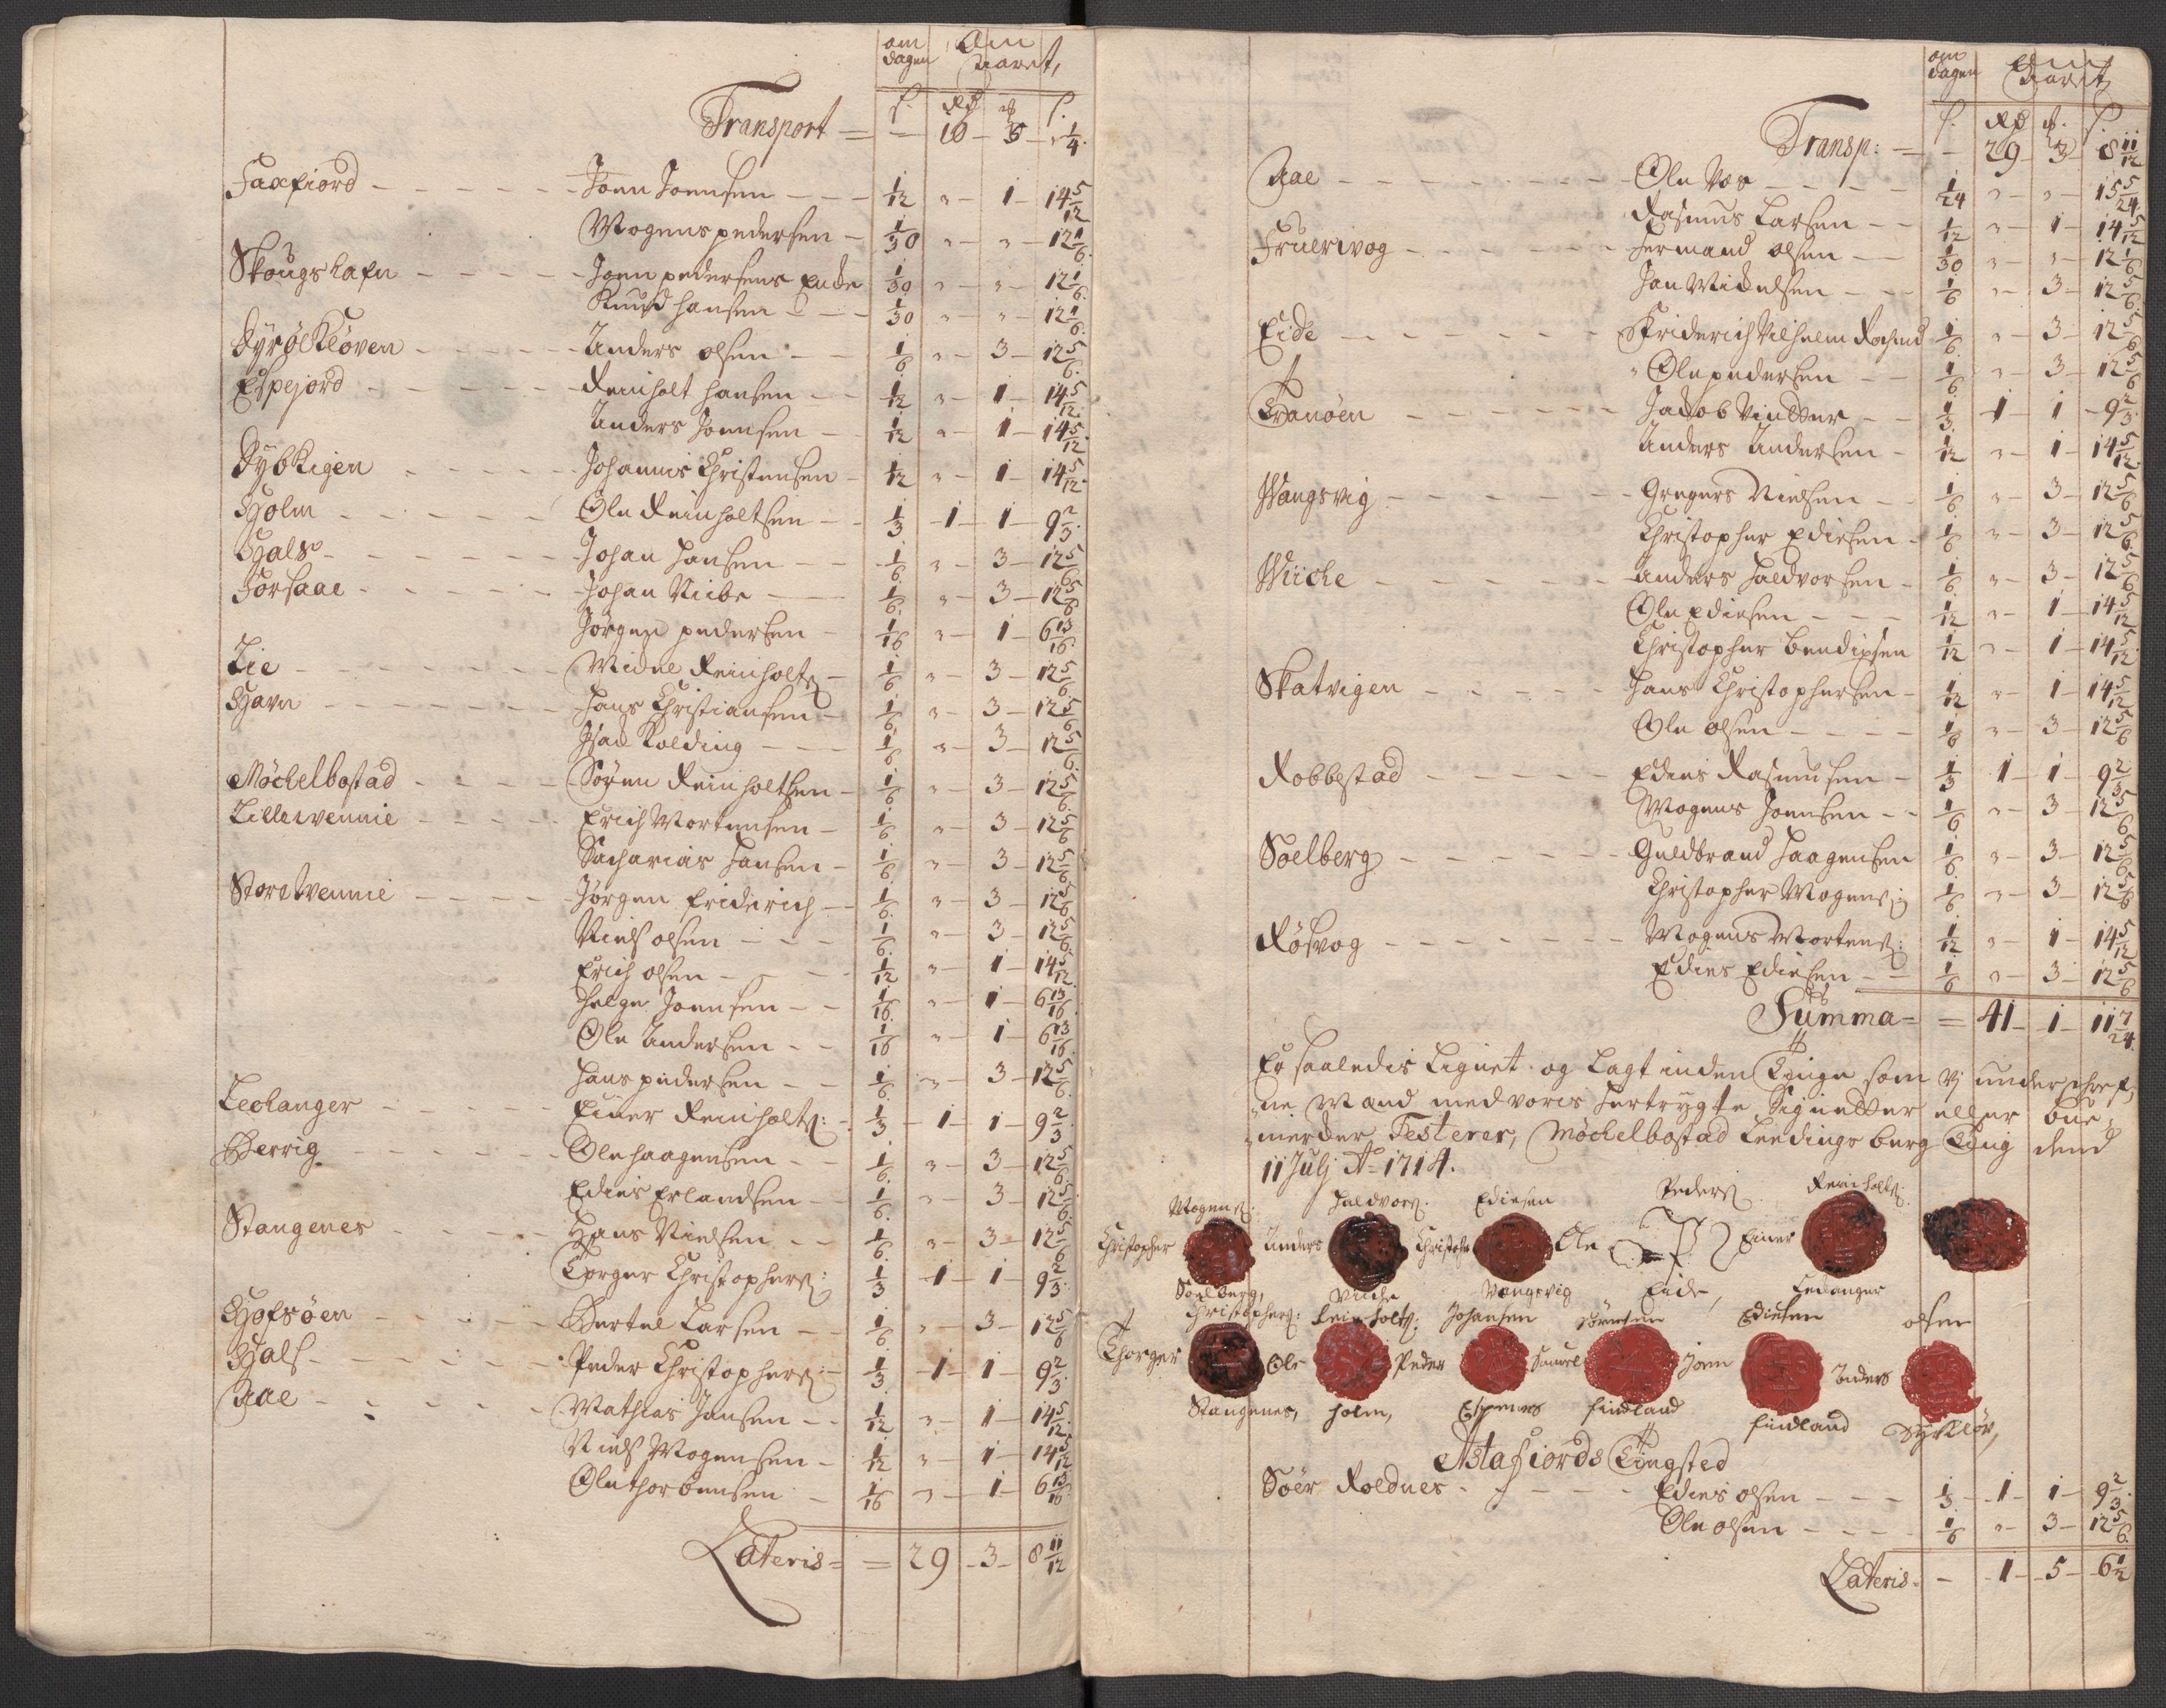 om dagen Om Aaret,
ß. Rdr ort ß.
Transport = — 10 — 5 — 1/4.
Faxfiord - - - - - - Joen Joensen - - - 1/12 " — 1 — 14 5/12
Mogens pedersen — 1/30 " — " — 12 1/6.
Skougshafn - - - - - Joen pedersens Encke 1/30 " — " — 12 1/6.
Knud hansen - - - 1/30 " — " — 12 1/6.
Dyrøekløven - - - - - Anders olsen - - 1/6 " — 3 — 12 5/6.
Espejord - - - - - Reinholt hansen - - 1/12 " — 1 — 14 5/12.
Anders Joensen - 1/12 " — 1 — 14 5/12.
Dybvigen - - - - - Johannis Christensen - 1/12 " — 1 — 14 5/12.
Holm - - - - - Ole Reinholtsen - - 1/3 — 1 — 1 — 9 2/3.
Hals - - - - - - Johan hansen - - 1/6 " — 3 — 12 5/6
Forsaae - - - - - Johan Riibe - - 1/6 " — 3 — 12 5/6
Jørgen pedersen - 1/16 " — 1 — 6 13/16.
Lie - - - - - - - Michel Reinholts: - 1/6 " — 3 — 12 5/6
Havn - - - - - - - hans Christiansen - 1/6 " — 3 — 12 5/6
Isac Kolding - - - 1/6 " — 3 — 12 5/6.
Møchelbostad - - - - Sören Reinholtsen - 1/6 " — 3 — 12 5/6.
Lillewennie - - - - - Erich Mortensen - 1/6 " — 3 — 12 5/6
Sacharias hansen - 1/6 " — 3 — 12 5/6
Storewennie - - - - Jørgen friderich - - 1/6. " — 3 — 12 5/6
Niels olsen - - - 1/6. " — 3 — 12 5/6.
Erich olsen - - - 1/12 " — 1 — 14 5/12.
helge Joensen - - 1/16. " — 1 — 6 13/16
Ole Andersen - - 1/16 " — 1 — 6 13/16.
hans pedersen - - 1/6. " — 3 — 12 5/6.
Leclanger - - - - - Einer Reinholts: - 1/3 — 1 — 1 — 9 2/3
Berrig - - - - - - Ole haagensen - - 1/6. " — 3 — 12 5/6.
Edies Erlandsen - - 1/6. " — 3 — 12 5/6.
Stangenes - - - - - Hans Nielsen - - 1/6. " — 3 — 12 5/6
Torger Christophers: 1/3 — 1 — 1 — 9 2/3.
Hofsøen - - - - - Bertel Larsen - - 1/6 " — 3 — 12 5/6
Hals - - - - - - Peder Christophers: 1/3 — 1 — 1 — 9 2/3.
Aae - - - - - - Mathias Jansen - - 1/12 " — 1 — 14 5/12.
Niels Mogensen - 1/12 " — 1 — 14 5/12
Ole thorbensen - 1/16 " — 1 — 6 13/16.
Lateris = = 29 — 3 — 8 11/12
om dagen Om Aaret,
ß. Rdr ort. ß.
Transp: = — 29 — 3 — 8 11/12
Aae - - - - - - - Ole Aas - - - - 1/24 " — " — 15 5/24.
Rasmus Larsen - - 1/12 " — 1 — 14 5/12
Fruerwog - - - - - - hermand olsen - - 1/30 " — " — 12 1/6
Jan Michelsen - - 1/6 " — 3 — 12 5/6.
Eide - - - - - - Friderich Vilhelm 1/6. " — 3 — 12 5/6
Ole pedersen - - 1/6. " — 3 — 12 5/6
Tranöen - - - - - - Jacob Vindter - - 1/3. — 1 — 1 — 9 2/3.
Anders Andersen - 1/12 " — 1 — 14 5/12.
Wangsvig - - - - - - Gregers Nielsen - - 1/6 " — 3 — 12 5/6
Christopher Ediesen - 1/6 " — 3 — 12 5/6
Wiiche - - - - - - Anders haldvorsen - 1/6 " — 3 — 12 5/6
Ole Ediesen - - - 1/12 " — 1 — 14 5/12
Christopher bendixsen 1/12 " — 1 — 14 5/12.
Skatvigen - - - - - hans Christophersen - 1/12 " — 1 — 14 5/12
Ole olsen - - - - 1/6 " — 3 — 12 5/6
Robbestad - - - - - Edies Rasmusen - 1/3 1 — 1 — 9 2/3
Mogens Joensen - - 1/6 " — 3 — 12 5/6
Soelberg - - - - - - Guldbrand haagensen 1/6. " — 3 — 12 5/6
Christopher Mogens: 1/6 " — 3 — 12 5/6
Røsvog - - - - - - Mogens Mortens: 1/12 " — 1 — 14 5/12
Edies Ediesen - - 1/6 " — 3 — 12 5/6
Summa = = 41 — 1 — 11 7/24.
Er saaledis Lignet og Lagt inden Tinge som vj underschref,,
ne Mænd med voris hertrygte Signetter eller boe,,
merder Testerer, Møchelbostad Leedings berg Ting dend
11 Julj Ao 1714.
Mogens: haldvors: Ediesen Peders Reinholts:
Christopher Anders Christoph Ole Einer
Soelberg, Wiiche Wangsvig Eide, Leclanger
Christophers: Reinholts: Johansen Sörensen Ediesen olsen
Thorger Ole Peder Samuel Joen Anders
Stangenes, holm, Espenes findland findland Dyrkløv,
Astafiords Tingsted
Söer Roldnes - - - - - Edies olsen - - - 1/3 — 1 — 1 — 9 2/3.
Ole olsen - - - - 1/6 " — 3 — 12 5/6.
Lateris = — 1 — 5 — 6 1/2